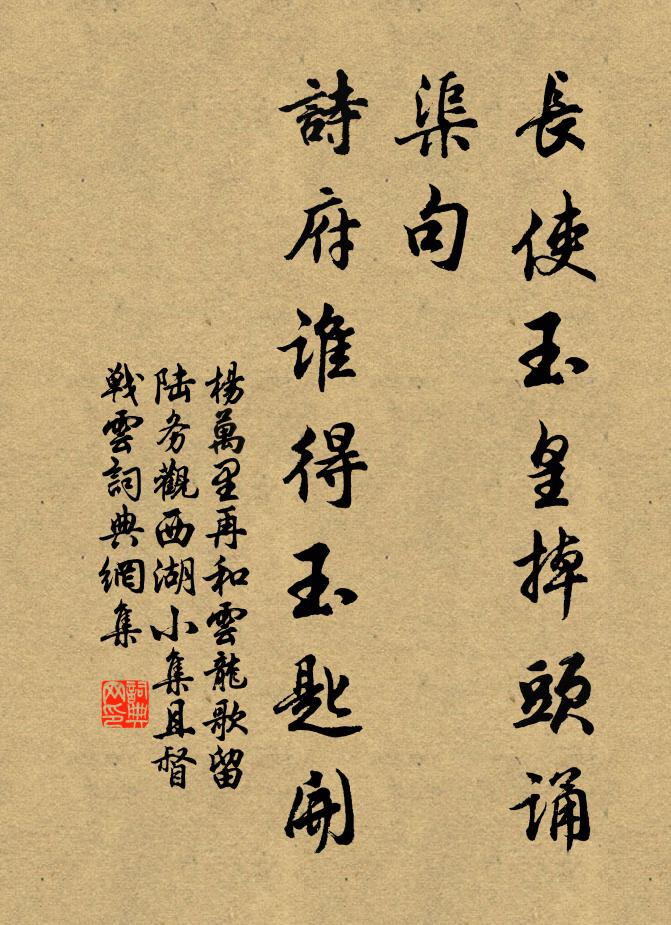 長使玉皇掉頭誦
渠句
詩府誰得玉匙開
楊萬里再和雲龍歌留
陸务觀西湖小集且督
戰雲詞典網集
詞典网印